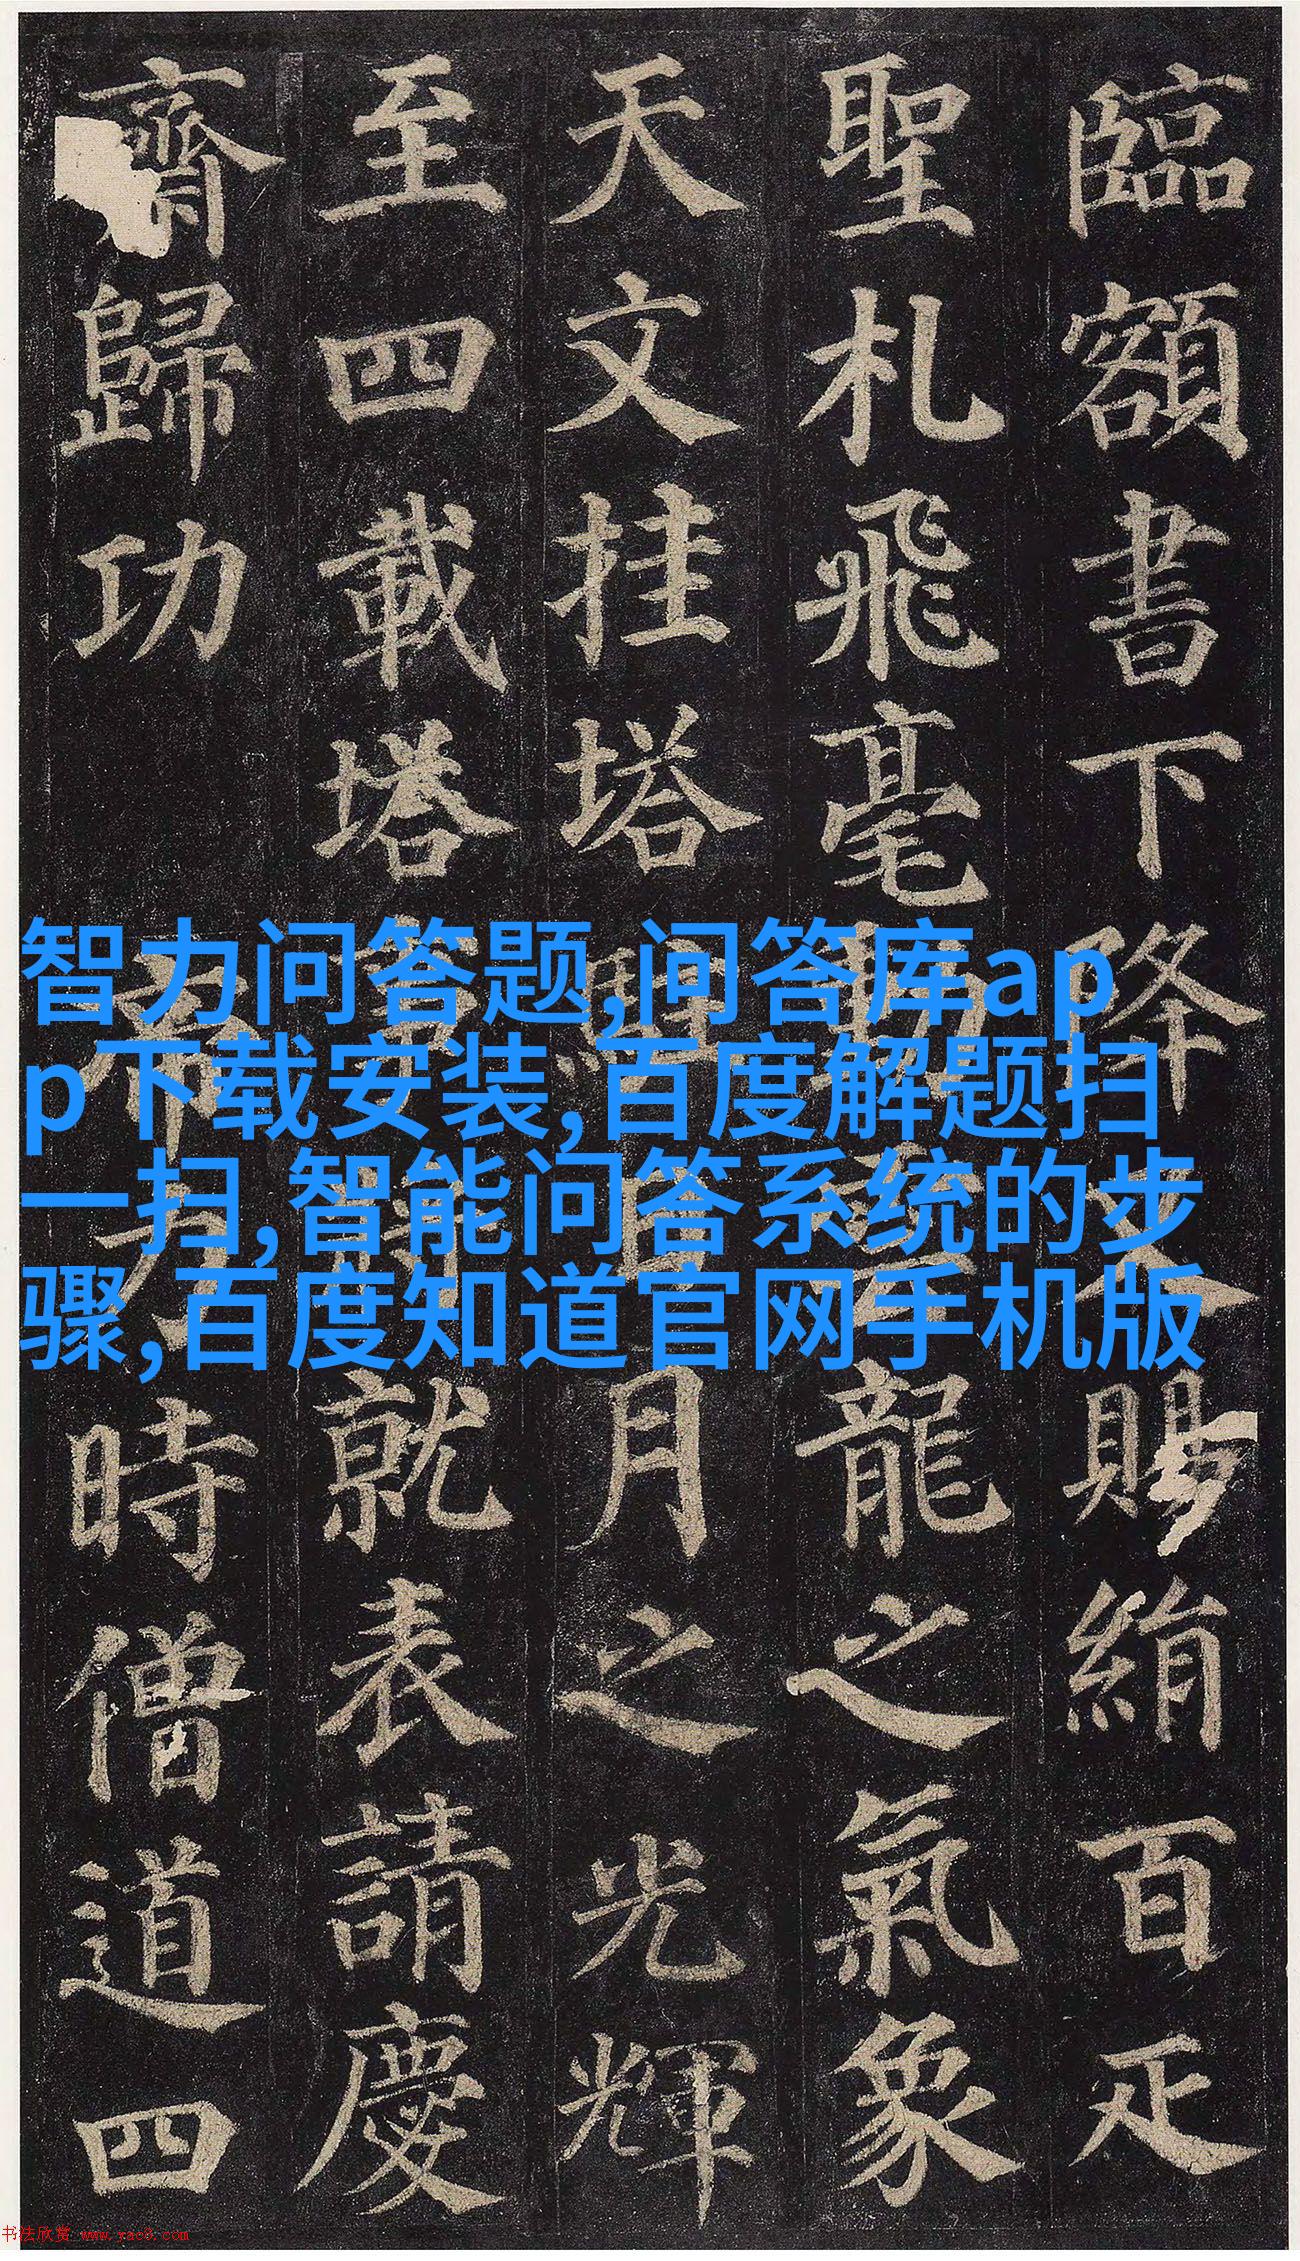 臨額書下降又賜絹百疋
聖札飛毫動雲龍之氣象
天文挂塔駐日月之光輝
至四載塔事將就表請慶
齋歸功 帝力時僧道四
智力问答题,问答库ap
p下载安装,百度解题扫
一扫,智能问答系统的步
骤,百度知道官网手机版
书法欣赏 www.yac8.com